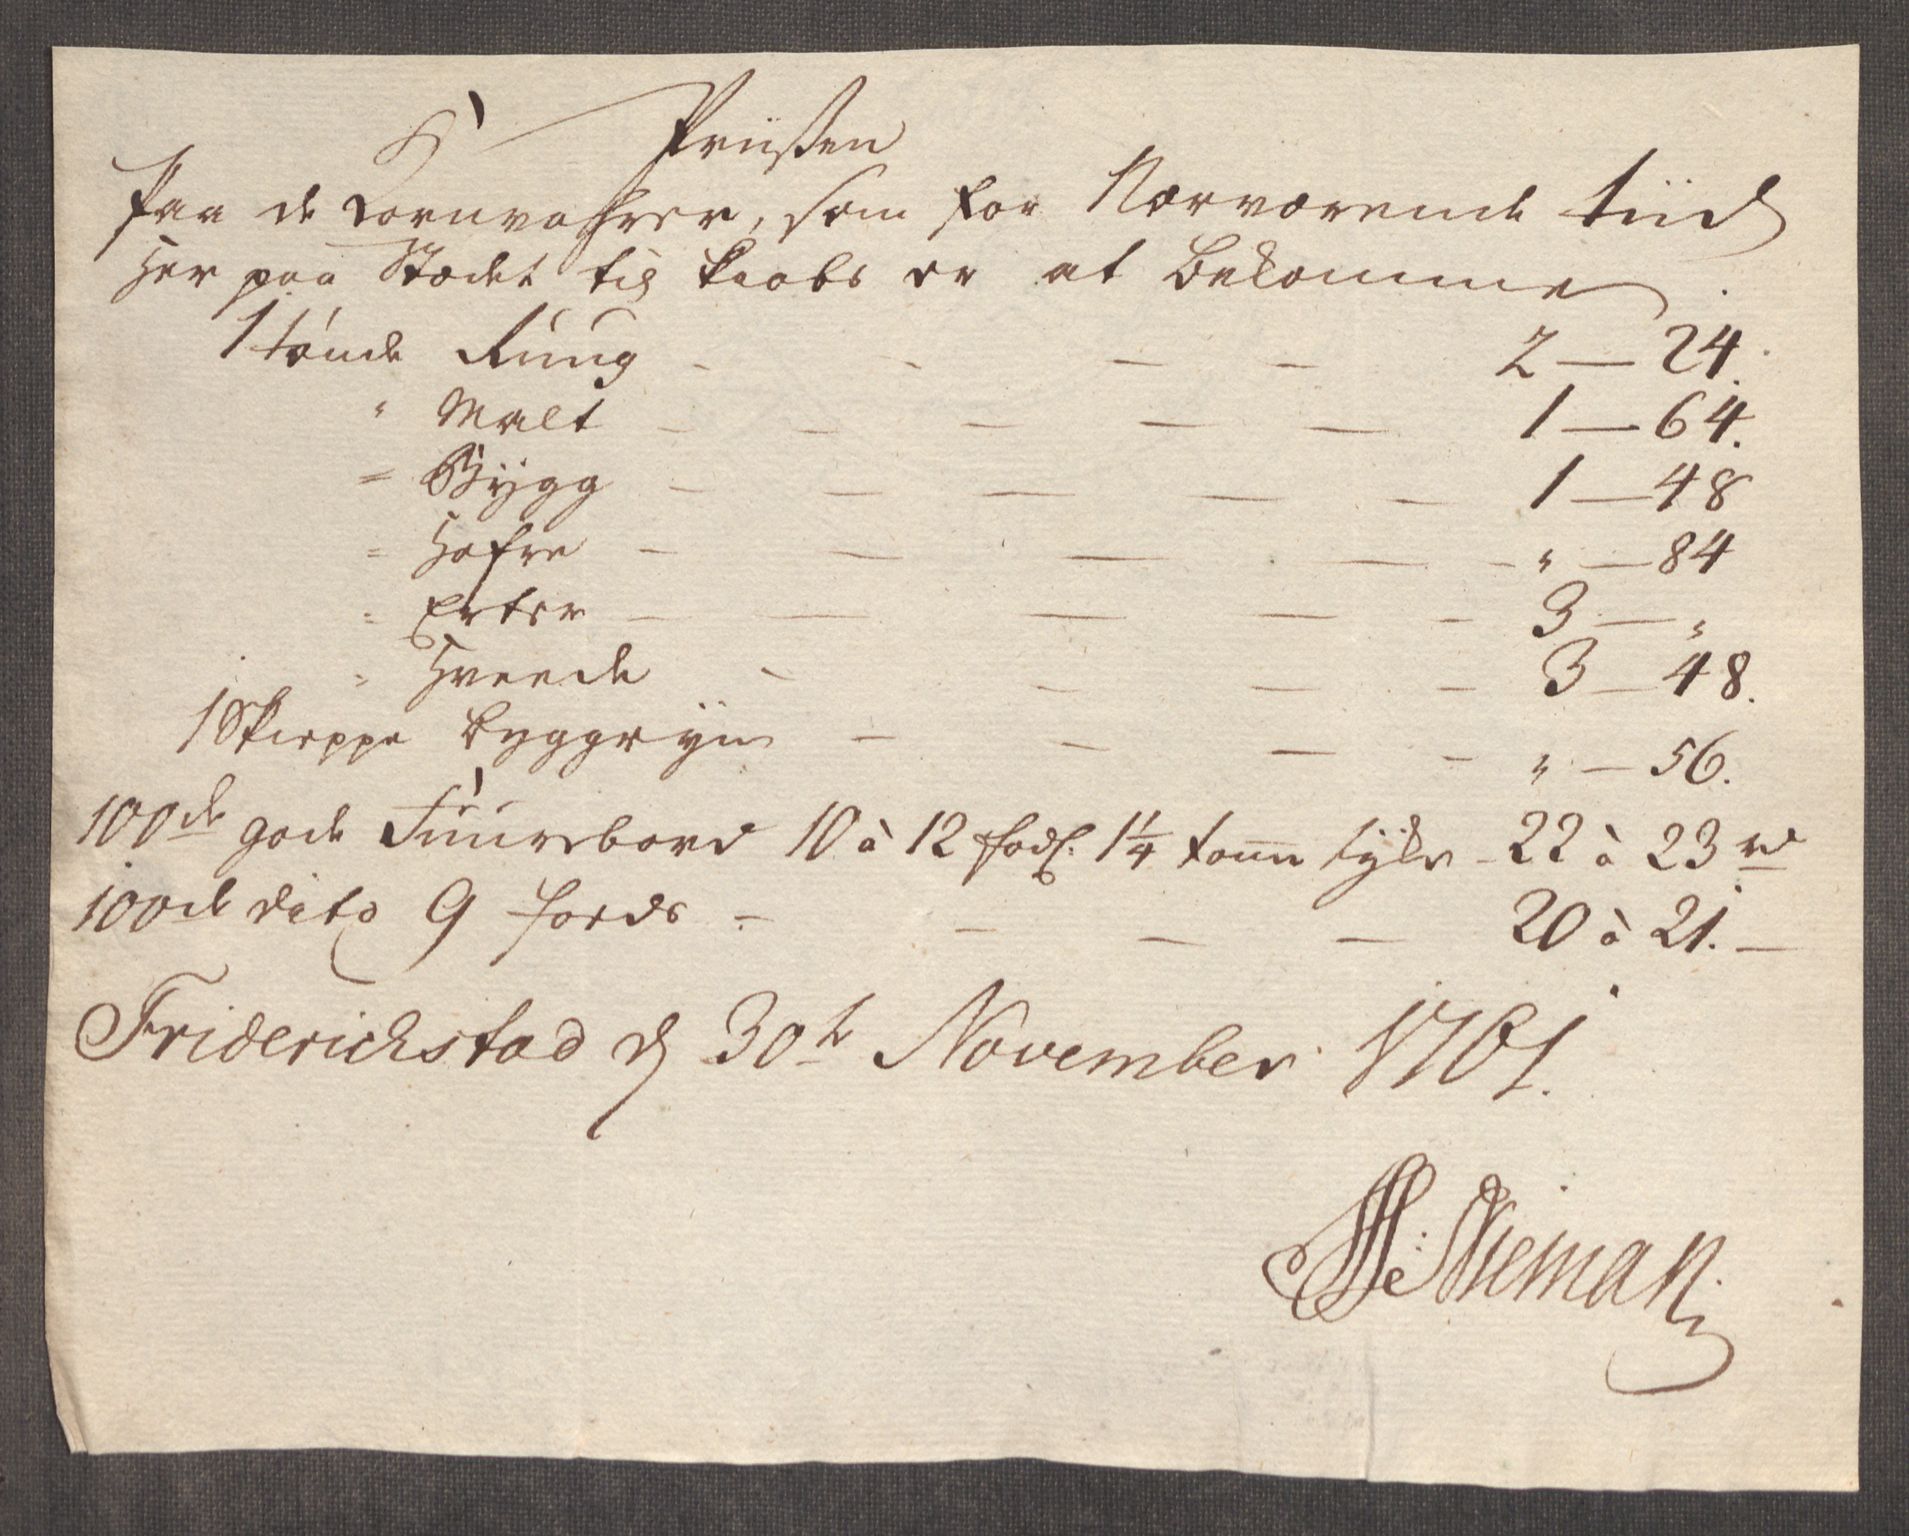 Priisen
Paa de Kornvahrer, som for Nærværende tiid
Her paa Stædet til Kiøbs er at bekomme.
1 tønde Ruug - - - - 2 — 24.
" Malt - - - - - 1 — 64.
" Bygg - - - - - 1 — 48
" Hafre - - - - - " — 84
" Erter - - - - - 3 — "
" Hveede - - - - 3 — 48.
1 Skieppe byggryn - - - - " — 56.
100de gode Fuurebord 10 à 12 fods 1¼ tomme tykke - 22 à 23 rd
100de dito 9 foeds - - - - 20 à 21. —
Friderichstad d 30te November 1761.
Nieman